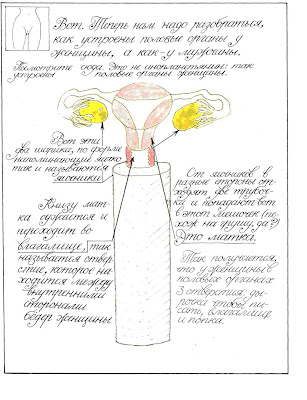 Вот. Теперь нам надо разобраться,
как устроены половые органы у
женщины, а как-у мужчины.
Посмотрите сюда. Это не инопланетянин: так
устроены половые органы женщины.
Вот эти
два мешка, по форме
напоминающие яйцо
так и называются
яичники.
Книзу мат-
ка сужается и
переходит во
влагалище, так
называется отвер-
стие, которое на-
ходится между
внутренними
сторонами
бёдер женщины
От яичников в
разные стороны от-
ходят две трубоч-
ки и попадают вот
в этот мешочек (по-
хож на грушу, да?)
Это матка.
Так получается,
что у женщины в
половых органах
3 отверстия: ды-
рочка чтобы пи-
сать, влагалище
и попка.